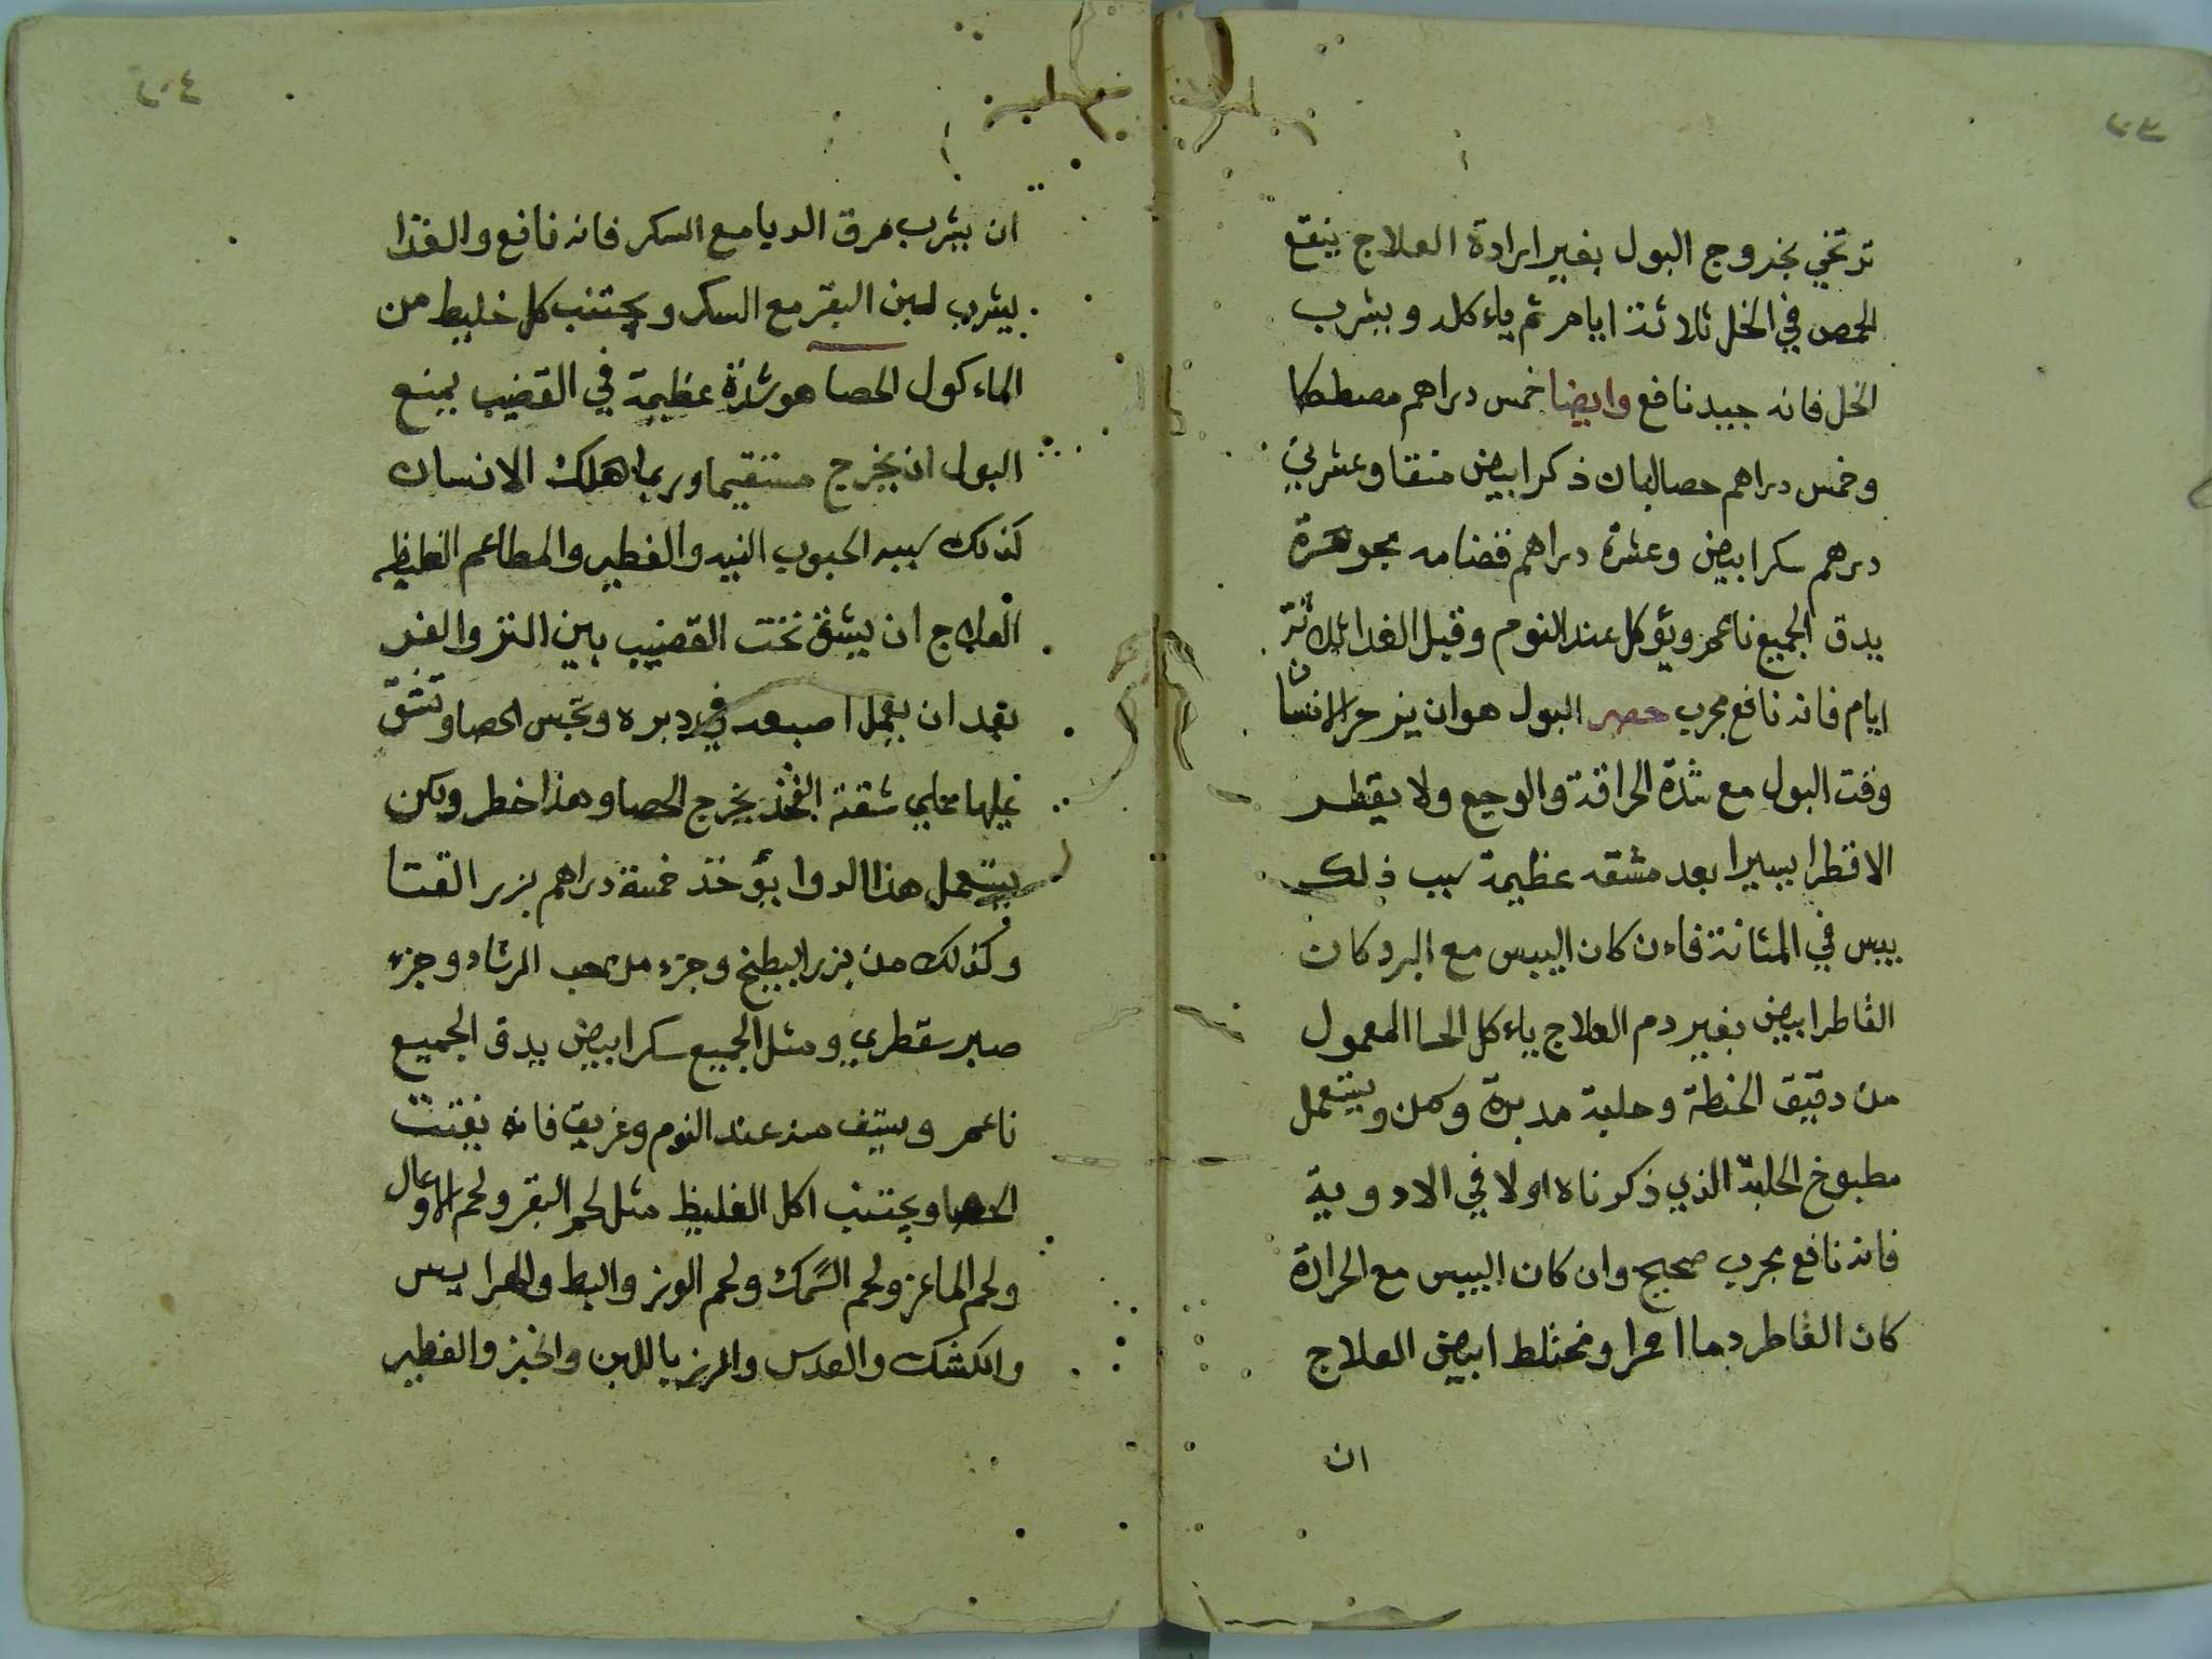 ترتخي بخروج البول بغير ارادة العلاج ينقع
الحمص في الخل ثلاثة ايام ثم ياءكله ويشرب
الخل فانه جيد نافع وايضا خمس دراهم مصطكا
وخمس دراهم حصالبان ذكر ابيض منقا وعشرين
درهم سكر ابيض وعشرة دراهم قضامه مجوهرة
يدق الجميع ناعم ويؤكل عند النوم وقبل الغدا ثلاثة
ايام فانه نافع مجرب حصر البول هو ان ينزحر الانسان
وقت البول مع شدة الحراقة والوجع ولا يقطر
الا قطرا يسيرا بعد مشقه عظيمة سبب ذلك
يبس في المثانة فاءن كان اليبس مع البرد كان
القاطر ابيض بغير دم العلاج ياءكل الحسا المعمول
من دقيق الحنطة وحلبة مدبرة وسمن ويستعمل
مطبوخ الحلبة الذي ذكرناه اولا في الادوية
فانه نافع مجرب صحيح وان كان اليبس مع الحرارة
كان القاطر دما احمرا ومختلط ابيض العلاج
ان
ان يشرب مرق الديا مع السكر فانه نافع والغدا
يشرب لبن البقر مع السكر ويجتنب كل خليط من
الماءكول الحصا هو شدة عظيمة في القضيب يمنع
البول ان يخرج مستقيما وربما هلك الانسان
كذلك سببه الحبوب النيه والفطير والمطاعم الغليظه
العلاج ان يشق تحت القضيب بين النز والفخذ
بعد ان يعمل اصبعه في دبره وتحبس الحصا وتشق
عليها محلي شقة الفخذ يخرج الحصا وهذا خطر ولكن
يستعمل هذا الدوا يؤخذ خمسة دراهم بزر القتا
وكذلك من بزر البطيخ وجزء من حب الرشاد وجزء
صبر سقطري ومثل الجميع سكر ابيض يدق الجميع
ناعم ويستف منه عند النوم وعريق فانه يفتت
الحصا ويجتنب اكل الغليظ مثل لحم البقر ولحم الاوعال
ولحم الماعز ولحم السمك ولحم الوز والبط والهرايس
والكشك والعدس والرز باللبن والخبز والفطير